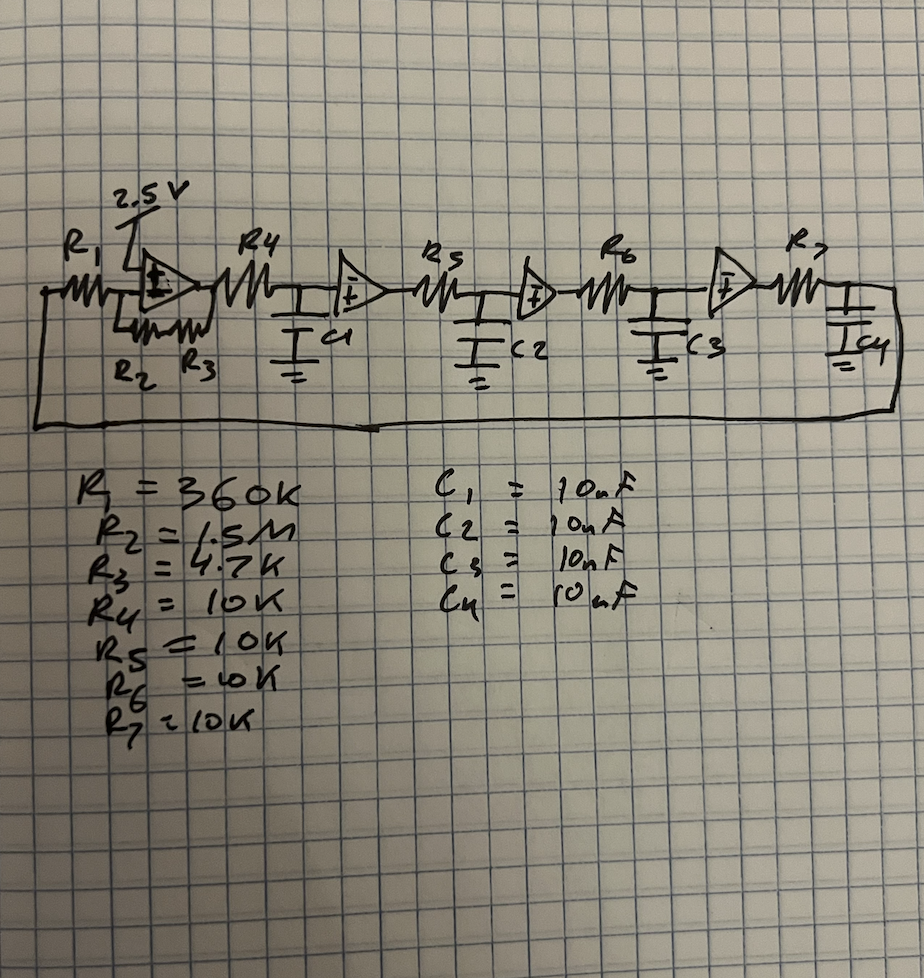 2.5 V
R1 R4 R5 R6 R7
R2 R3 C1 C2 C3 C4
R1 = 360K
R2 = 1.5M
R3 = 4.7K
R4 = 10K
R5 = 10K
R6 = 10K
R7 = 10K
C1 = 10nF
C2 = 10nF
C3 = 10nF
C4 = 10nF